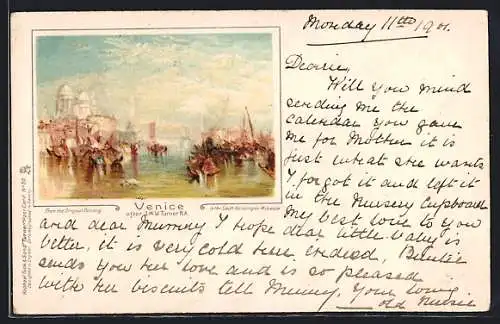 Monday 11th 1901.
Dearie,
Will you mind
sending me the
calendar you gave
me for Mother it is
just what she wants
I forgot it and left it
in the Nursery Cupboard
My best love to you
and dear Mummy I hope dear little Valey is
better, it is very cold here indeed,
sends you her love and is so pleased
with her biscuits tell Mummy, Your loving
old Nursie
From the Original Painting
Venice
after J.M.W. Turner R.A.
in the South Kensington Museum
Raphael Tuck & Sons' "Turner" Post Card No 32